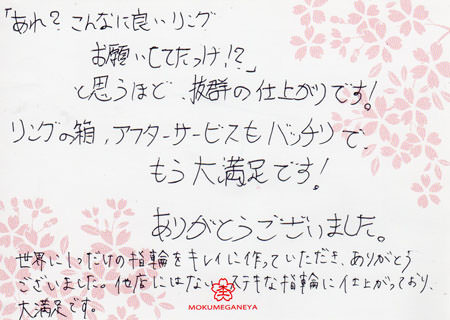 「あれ？こんなに良いリング
お願いしてたっけ！？」
と思うほど、抜群の仕上がりです！
リングの箱、アフターサービスもバッチリで、
もう大満足です！
ありがとうございました。
世界に1つだけの指輪をキレイに作っていただき、ありがとう
ございました。他店にはないステキな指輪に仕上がっており、
大満足です。
MOKUMEGANEYA